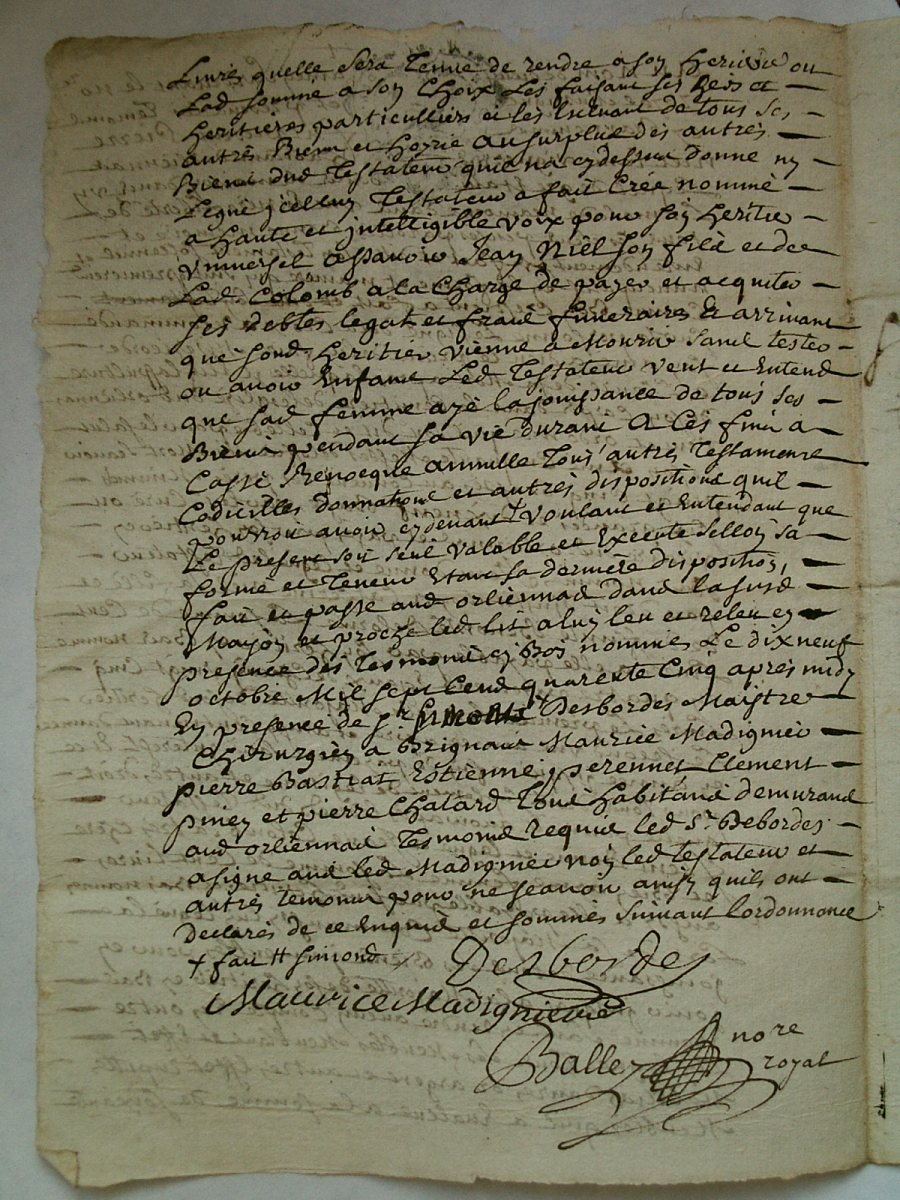 Livres quelle sera tenue de rendre a son heritier ou
Lad somme a son choix Les faisant ses heis et
heritieres particulliers et les excluant de tous ses
autres Biens et hoyrie au surplus des autres
Biens dud Testateur quil na cydessus donne ny
Legué jcelluy Testateur a fait Crée nomme
a haute et jntelligible voix pour son heritier
vniversel assavoir Jean Niel son fils et de
Lad. Colomb a la charge de payer et acquiter
ses debtes legat et frais funeraires Et arrivant
que sond heritier vienne a mourir sans tester
ou avoir Enfans Led Testateur veut et Entend
que sad femme aye la jouissance de tous ses
Biens pendant sa vie durant A Ces fins a
Cassé Revocque annulle tous autres Testamens
Codicilles donnations et autres dispositions quil
pourroit avoir cydevant f. voulant et Entendant que
Le present soit seul valable et Execute sellon sa
forme et Teneur Etant sa derniere disposition,
fait et passe aud orliennas dans la susd
Mayon et proche led lit a luy leu et releu en
presence des tesmoins cy Bas nommes Le dix neuf
octobre Mil sept Cens quarente Cinq apres midy
En presence de Sr Desbordes Maistre
Chirurgien a Brignais Maurice Madignier
pierre Bastiat Estienne perennet, Clement
piney et pierre Chatard tous habitans demurans
aud orliennas tesmoins requis led Sr. Debordes
a signe avec led Madignier non led testateur et
autres temoins pour ne scavoir ainsy quils ont
declares de ce Enquis et sommes suivant lordonnance
+ fait # simond
Desbordes
Maurice Madignier
Balley nore
royal